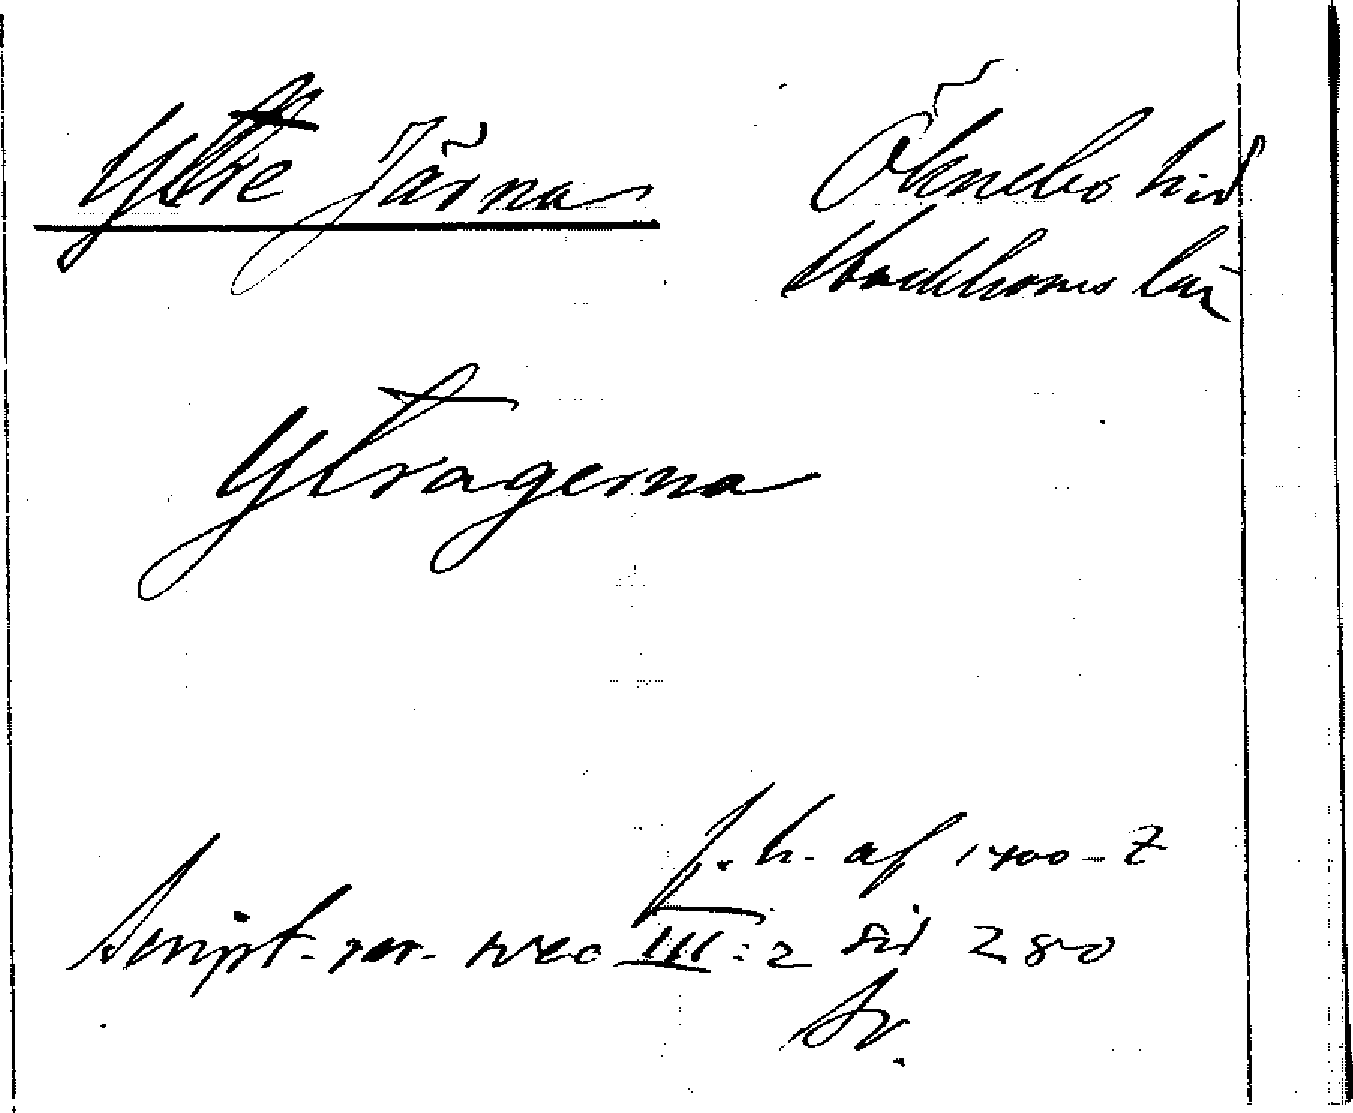 Yttre Järna Öknebo hd
Stockholms län
Ytragerna
f. h. af 1400-t
Script. rer. svec III:2 sid 280
Sv.